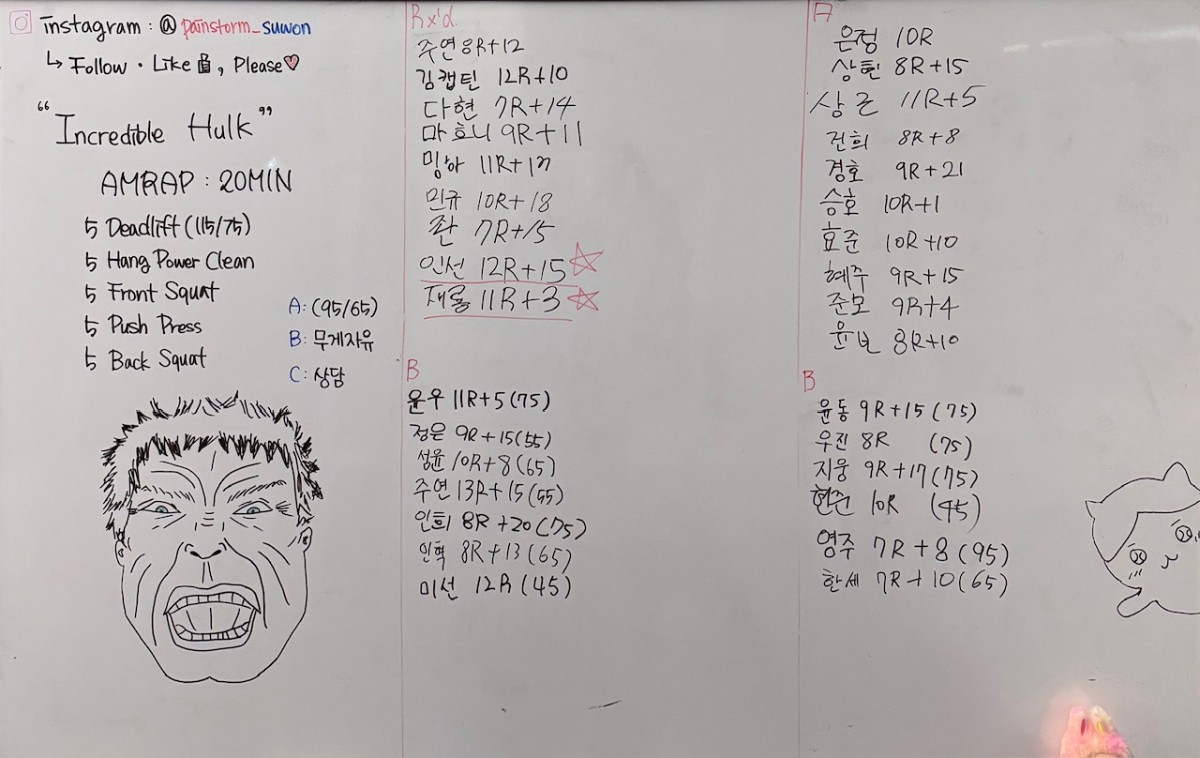 instagram : @painstorm_suwon
↳ Follow · Like 👍, Please♡
"Incredible Hulk"
AMRAP : 20MIN
5 Deadlift (115/75)
5 Hang Power Clean
5 Front Squat
5 Push Press
5 Back Squat
A: (95/65)
B: 무게자유
C: 상담
Rx'd
주연 8R+12
김캡틴 12R+10
다현 7R+14
마호니 9R+11
밍하 11R+17
민규 10R+18
쫜 7R+15
인선 12R+15 ☆
재롱 11R+3 ☆
B
윤우 11R+5 (75)
정은 9R+15 (55)
성윤 10R+8 (65)
주연 13R+15 (55)
인희 8R+20 (75)
인혁 8R+13 (65)
미선 12R (45)
A
은정 10R
상훈 8R+15
상근 11R+5
건희 8R+8
경호 9R+21
승호 10R+1
효준 10R+10
혜주 9R+15
준모 9R+4
8R+10
B
윤동 9R+15 (75)
우진 8R (75)
지웅 9R+17 (75)
현준 10R (45)
영주 7R+8 (95)
한세 7R+10 (65)